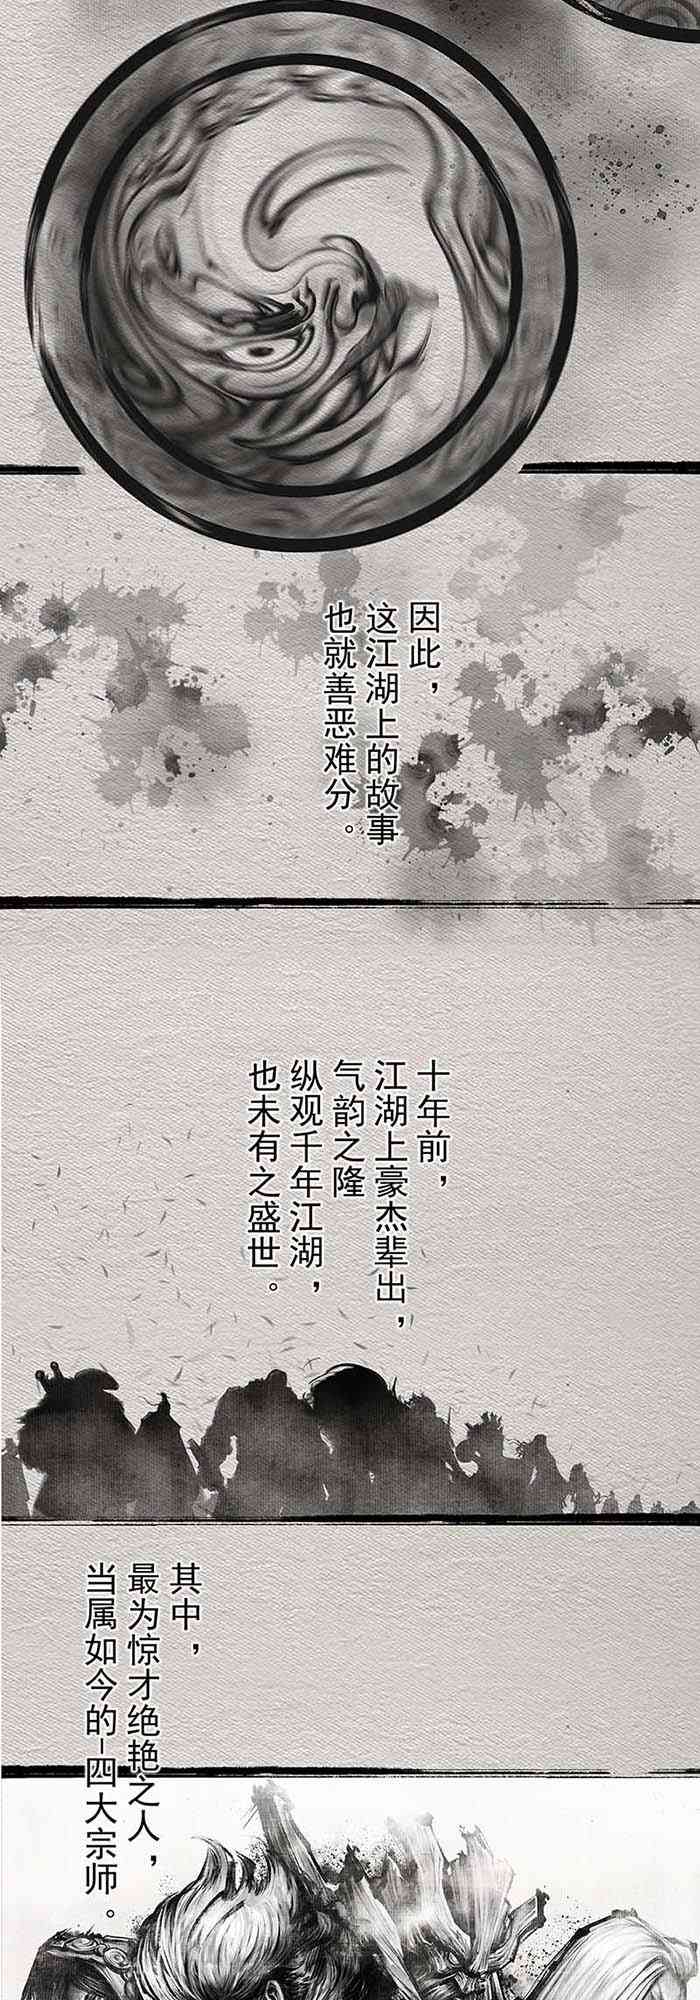 因此，
这江湖上的故事
也就善恶难分。
十年前，
江湖上豪杰辈出，
气韵之隆
纵观千年江湖，
也未有之盛世。
其中，
最为惊才绝艳之人，
当属如今的-四大宗师。